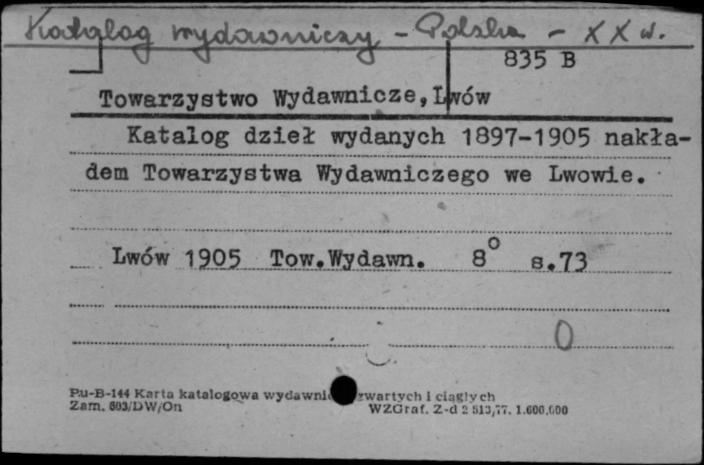 Katalog wydawniczy - Polska - XX w.
835 B
Towarzystwo Wydawnicze, Lwów
Katalog dzieł wydanych 1897-1905 nakła-
dem Towarzystwa Wydawniczego we Lwowie.
Lwów 1905 Tow.Wydawn. 8° s.73
0
Pu-B-144 Karta katalogowa wydawni zwartych i ciągłych
Zam. 603/DW/On WZGraf. Z-d 2 513,77. 1.600.000